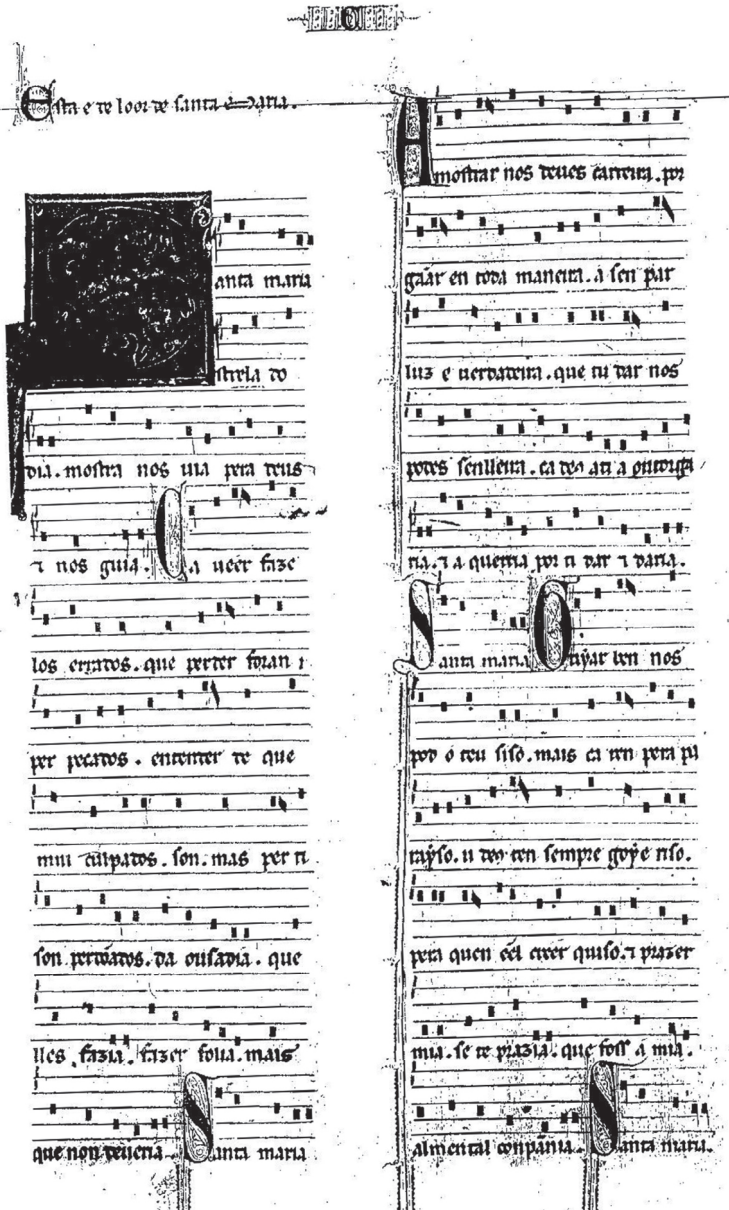 C
Esta e de loor de santa Maria.
Santa maria
strela do
dia. mostra nos uia pera deus
⁊ nos guia. Ca ueer faze
los errados. que perder foran
per pecados. entender de que
mui culpados. son. mas per ti
son perdõados. da ousadia. que
lles fazia. fazer folia. mais
que non deueria. Santa maria
Amostrar nos deues carreira. por
gãar en toda maneira. a sen par
luz e uerdadeira. que tu dar nos
podes senlleira. ca deo ati a outorga
ria. ⁊ a querria por ti dar ⁊ daria.
Santa maria Guyar ben nos
pod o teu siso. mais ca ren pera pa
rayso. u deo ten sempre goy e riso.
pera quen eel creer quiso. ⁊ prazer
mia. se te prazia. que foss a mia.
alma en tal conpãnia. Santa maria.